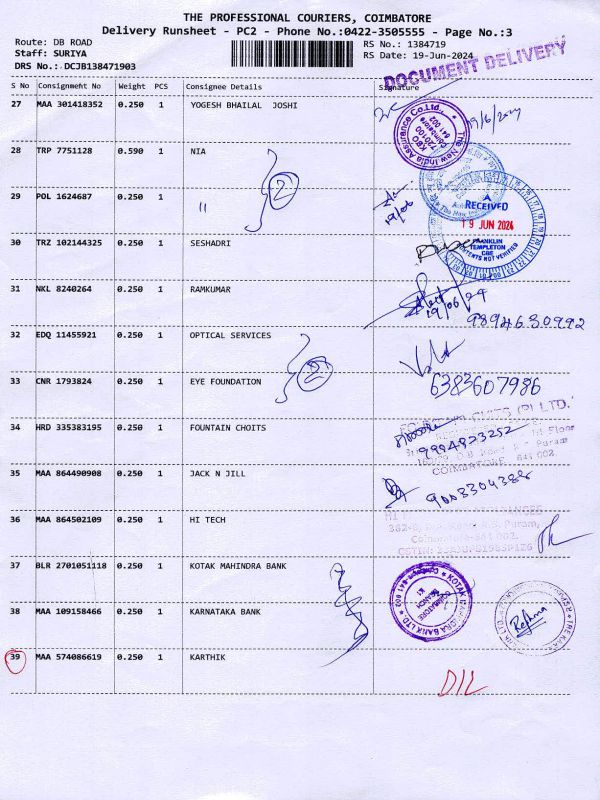 THE PROFESSIONAL COURIERS, COIMBATORE
Delivery Runsheet - PC2 - Phone No.:0422-3505555 - Page No.:3
Route: DB ROAD
Staff: SURIYA
DRS No.: DCJB138471903
RS No.: 1384719
RS Date: 19-Jun-2024
DOCUMENT DELIVERY
S No Consignment No Weight PCS Consignee Details Signature
27 MAA 301418352 0.250 1 YOGESH BHAILAL JOSHI
The New India Assurance Co.Ltd.,
KBO
720100
Coimbatore
641 002
28 TRP 7751128 0.590 1 NIA
2
29 POL 1624687 0.250 1 "
19/06
RECEIVED
19 JUN 2024
FRANKLIN
TEMPLETON
CBE
CONTENTS NOT VERIFIED
30 TRZ 102144325 0.250 1 SESHADRI
31 NKL 8240264 0.250 1 RAMKUMAR
19/06/24
9894630992
32 EDQ 11455921 0.250 1 OPTICAL SERVICES
2
33 CNR 1793824 0.250 1 EYE FOUNDATION
6383607986
34 HRD 335383195 0.250 1 FOUNTAIN CHOITS
9994923252
COIMBATORE 641 002.
35 MAA 864490908 0.250 1 JACK N JILL
9003304388
36 MAA 864502109 0.250 1 HI TECH
R.S. Puram,
Coimbatore-641 002.
37 BLR 2701051118 0.250 1 KOTAK MAHINDRA BANK
KOTAK MAHINDRA BANK LTD
COIMBATORE
BRANCH
38 MAA 109158466 0.250 1 KARNATAKA BANK
Reshma
39 MAA 574086619 0.250 1 KARTHIK
DIL